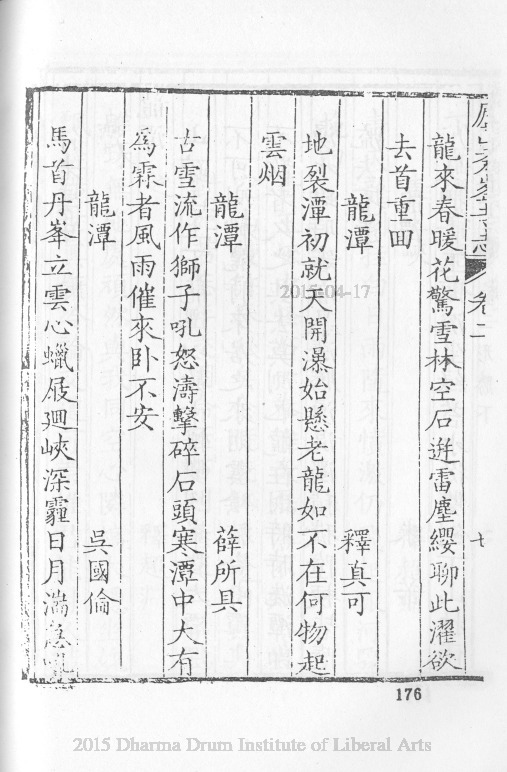 卷二
七
龍來春暖花驚雪林空石逬雷塵纓聊此濯欲
去首重回
龍潭
釋真可
地裂潭初就天開瀑始懸老龍如不在何物起
雲烟
龍潭
薛所具
古雪流作獅子吼怒濤擊碎石頭寒潭中大有
為霖者風雨催來卧不安
龍潭
吳國倫
馬首丹峯立雲心蠟屐廻峽深霾日月湍急
176
2015-04-17
2015 Dharma Drum Institute of Liberal Arts